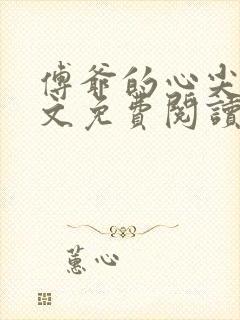 傅爺的心尖
文免費閱讀
蕙心